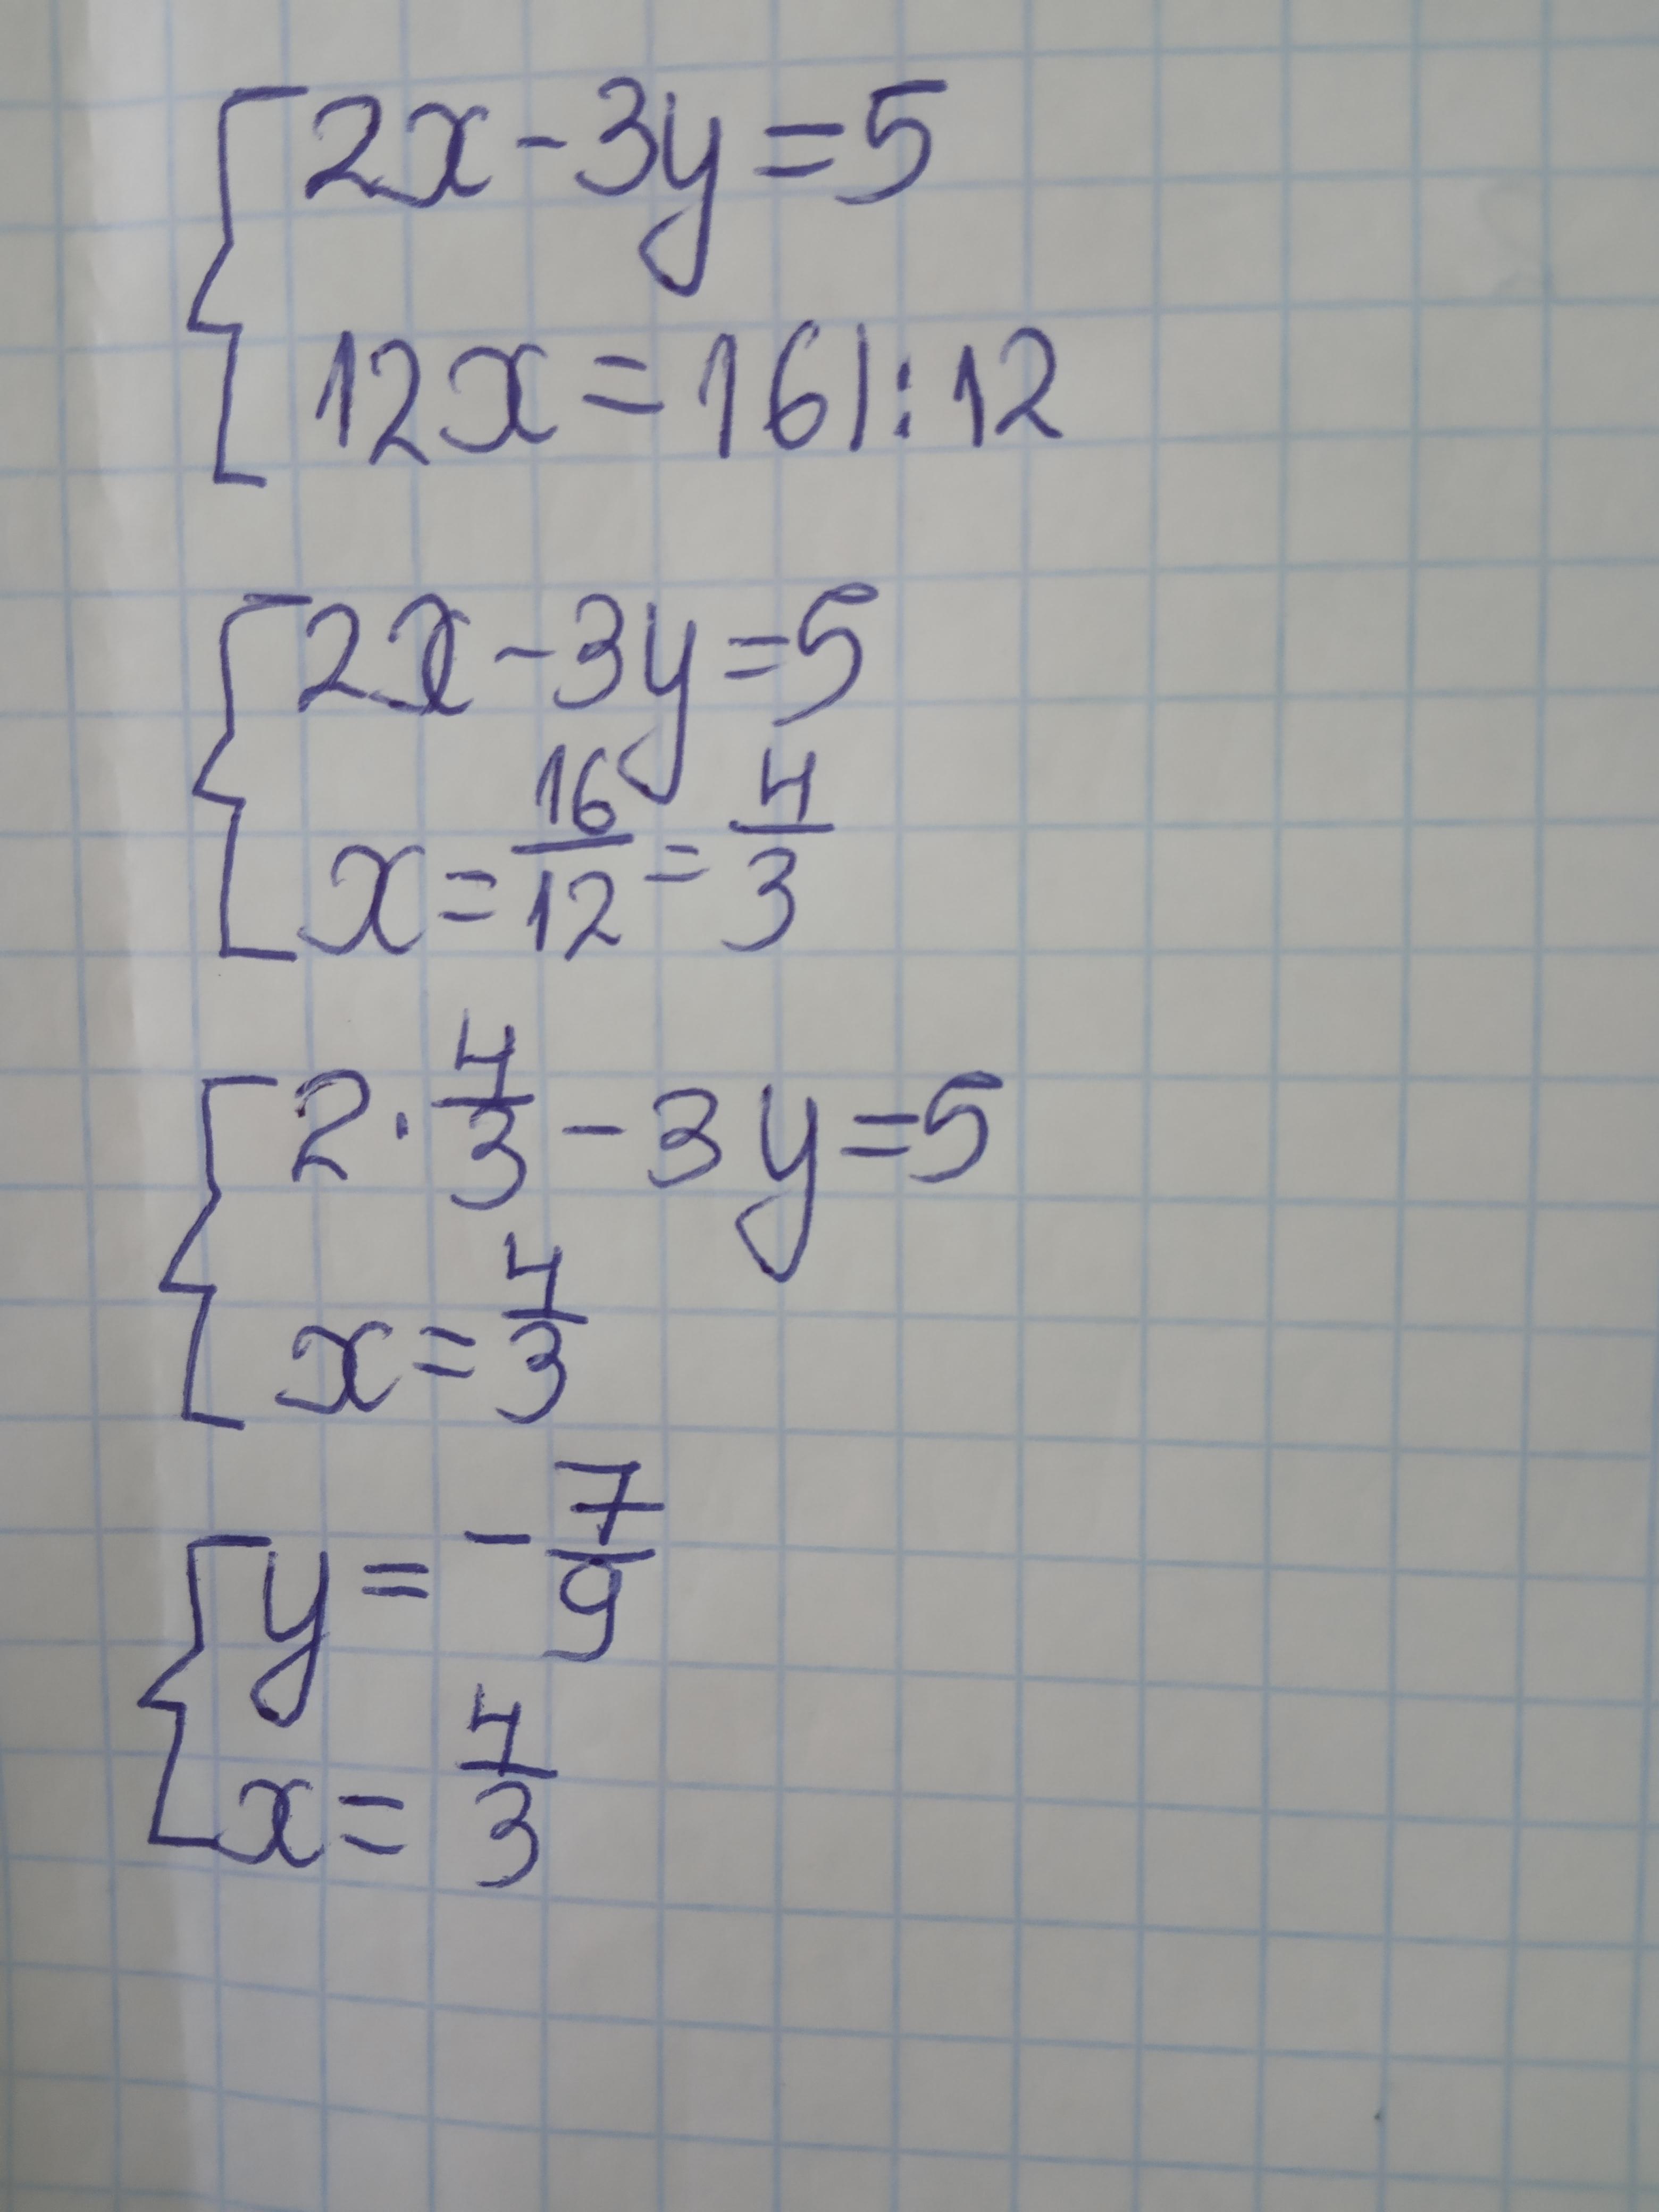 2x - 3y = 5
12x = 16 |: 12
2x - 3y = 5
x = 16/12 = 4/3
2 · 4/3 - 3y = 5
x = 4/3
y = - 7/9
x = 4/3